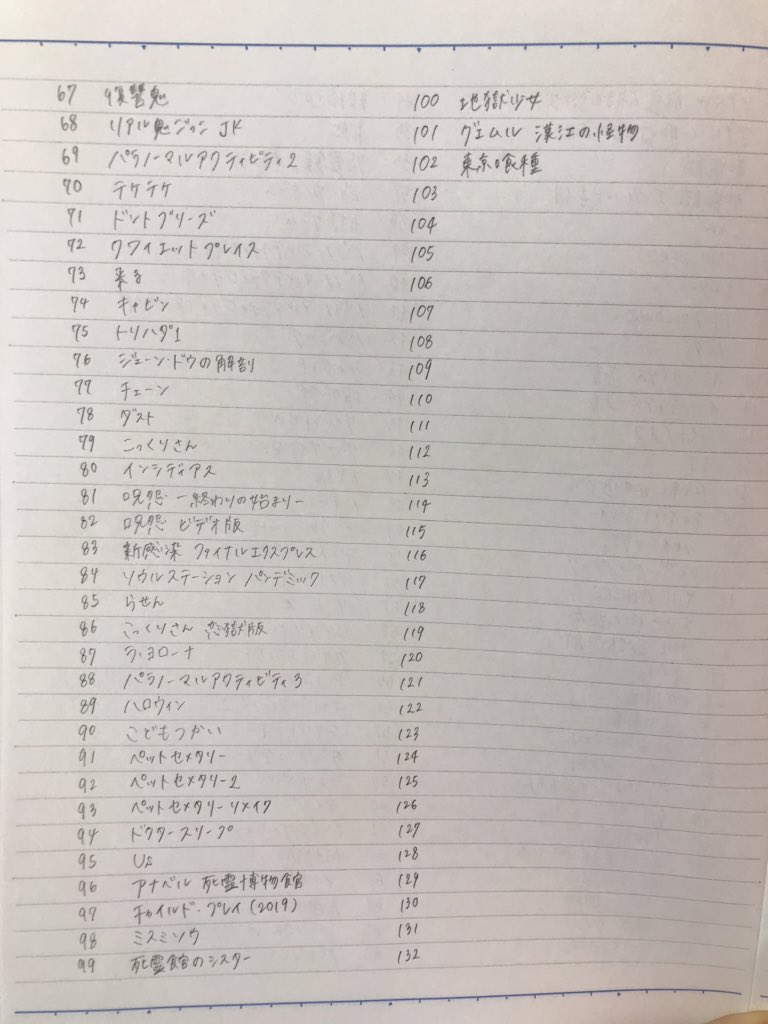 67 復讐鬼
68 リアル鬼ごっこ JK
69 パラノーマルアクティビティ2
70 テケテケ
71 ドントブリーズ
72 クワイエットプレイス
73 来る
74 キャビン
75 トリハダ1
76 ジェーン・ドウの解剖
77 チェーン
78 ダスト
79 こっくりさん
80 インシディアス
81 呪怨 -終わりの始まり-
82 呪怨 ビデオ版
83 新感染 ファイナルエクスプレス
84 ソウルステーション パンデミック
85 らせん
86 こっくりさん 恋獄版
87 ラ・ヨローナ
88 パラノーマルアクティビティ3
89 ハロウィン
90 こどもつかい
91 ペットセメタリー
92 ペットセメタリー2
93 ペットセメタリーリメイク
94 ドクタースリープ
95 Us
96 アナベル 死霊博物館
97 チャイルド・プレイ(2019)
98 ミスミソウ
99 死霊館のシスター
100 地獄少女
101 グエムル 漢江の怪物
102 東京喰種
103
104
105
106
107
108
109
110
111
112
113
114
115
116
117
118
119
120
121
122
123
124
125
126
127
128
129
130
131
132